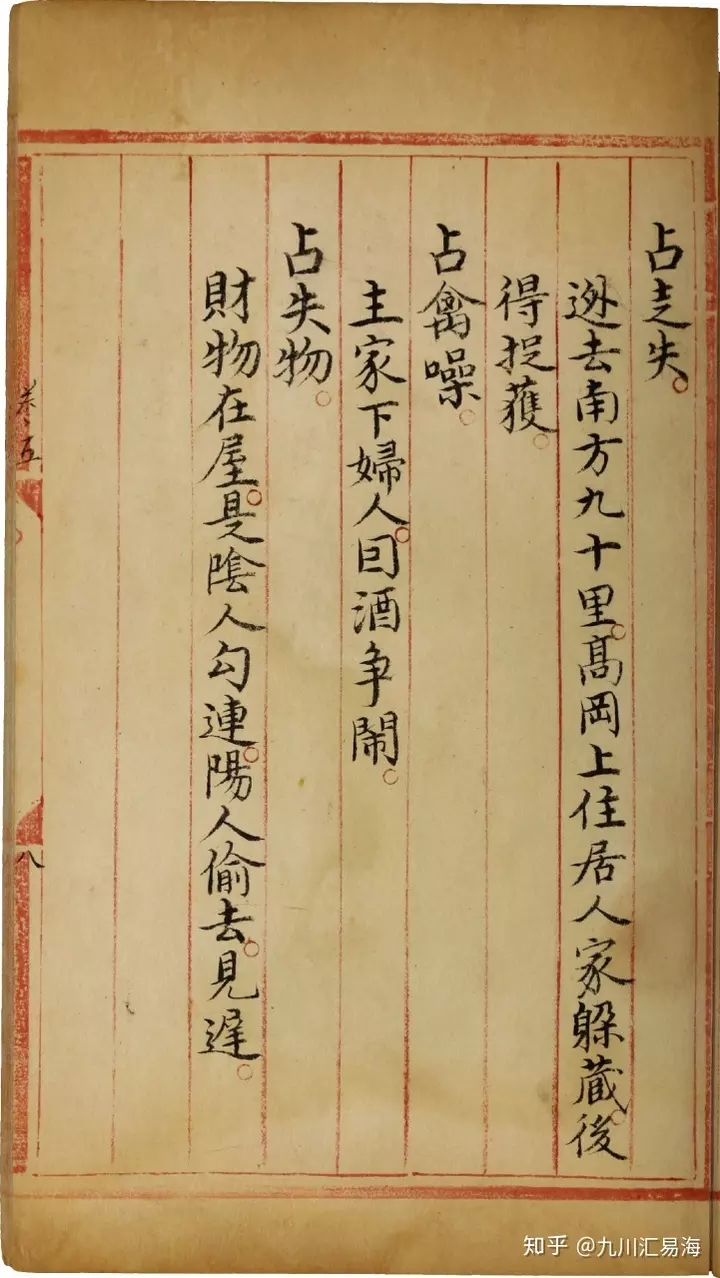 占走失。
逃去南方九十里。高岡上住居人家躲藏。後
得捉獲。
占禽噪。
主家下婦人。因酒争鬧。
占失物。
財物在屋。是陰人勾連。陽人偷去。見遲。
卷五
八
知乎 @九川汇易海